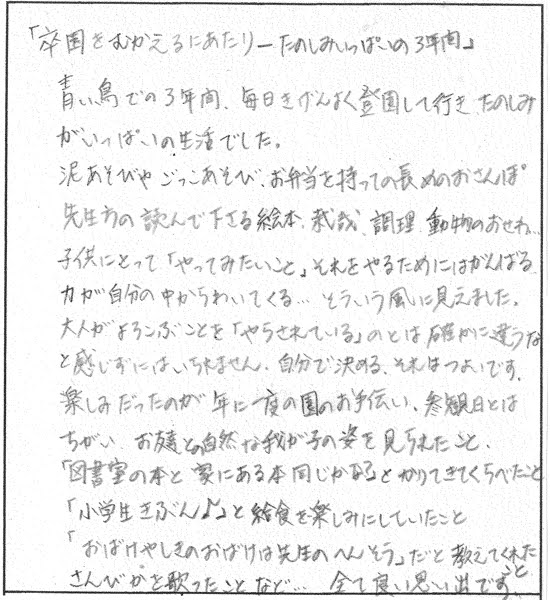 「卒園をむかえるにあたりーたのしみいっぱいの3年間」
青い鳥での3年間、毎日きげんよく登園して行き たのしみ
がいっぱいの生活でした。
泥あそびや ごっこあそび、お弁当を持っての長めのおさんぽ
先生方の読んで下さる絵本、裁哉、調理、動物のおせわ…
子供にとって「やってみたいこと」それをやるためにはがんばる
力が自分の中からわいてくる… そういう風に見えました。
大人がよろこぶことを「やらされている」のとは確かに違うな
と感じずにはいられません。自分で決める、それはつよいです。
楽しみだったのが 年に一度の園のお手伝い、参観日とは
ちがい、お友達との自然な我が子の姿を見られたこと、
「図書室の本と家にある本同じかな？」とかりてきてくらべたこと
「小学生きぶん♪」と給食を楽しみにしていたこと
「おばけやしきのおばけは先生のへんそう」だと教えてくれたこと
さんびかを歌ったことなど… 全て良い思い出です。